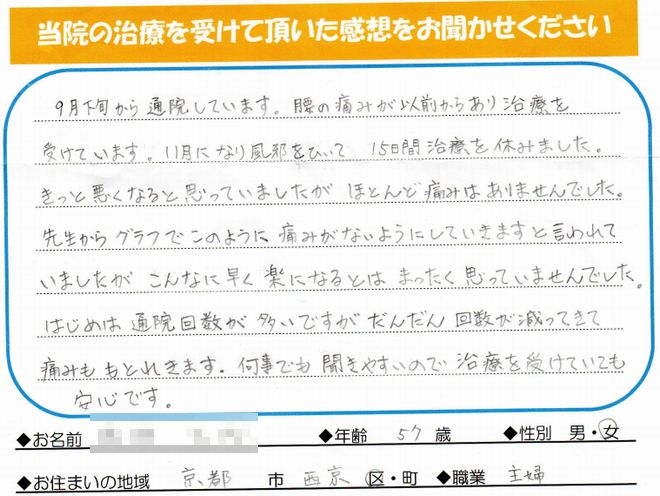 当院の治療を受けて頂いた感想をお聞かせください
9月下旬から通院しています。腰の痛みが以前からあり治療を
受けています。11月になり風邪をひいて 15日間治療を休みました。
きっと悪くなると思っていましたが ほとんど痛みはありませんでした。
先生から グラフで このように 痛みがないようにしていきますと言われて
いましたが こんなに早く 楽になるとは まったく思っていませんでした。
はじめは 通院回数が 多いですが だんだん 回数が減ってきて
痛みも とれきます。何事でも 聞きやすいので 治療を受けていても
安心です。
◆お名前 ◆年齢 57 歳 ◆性別 男・女
◆お住まいの地域 京都 市 西京 区・町 ◆職業 主婦